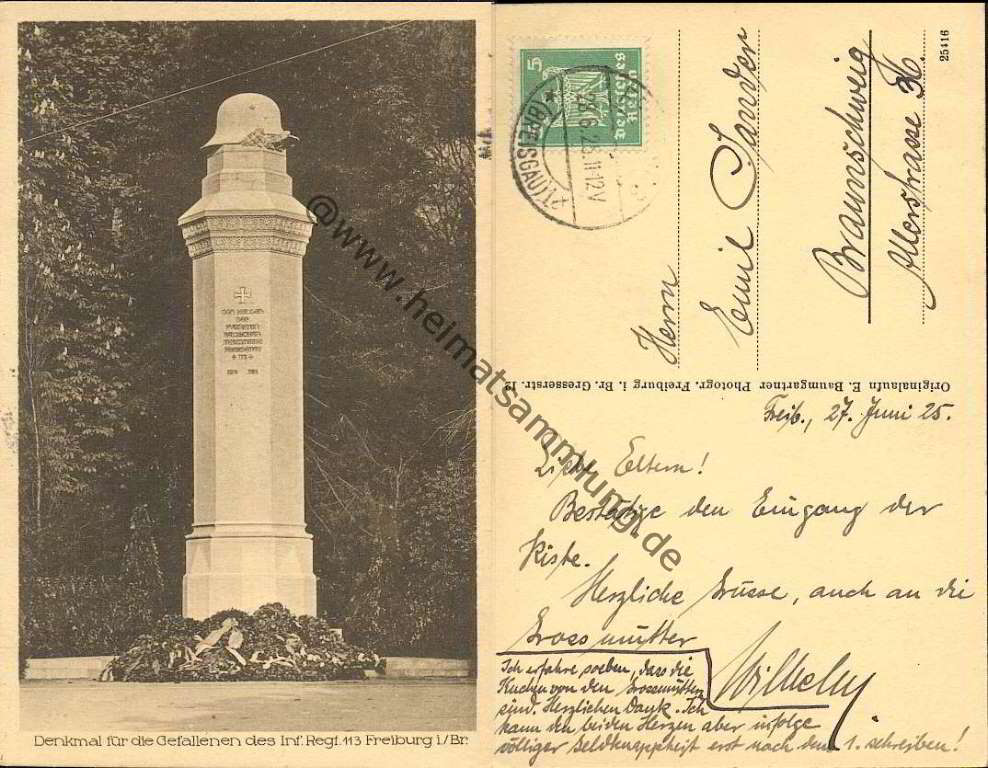 Denkmal für die Gefallenen des Inf. Regt. 113 Freiburg i/Br.
@www.heimatsammlung.de
5
Deutsches Reich
(BREISGAU) 1
25416
Herrn
Emil Sander
Braunschweig
Allerstrasse
Originalaufn E. Baumgartner Photogr. Freiburg i. Br. Gresserstr. 12
Freib., 27. Juni 25.
Liebe Eltern!
Bestätige den Eingang der
Kiste.
Herzliche Grüsse, auch an die
Grossmutter
Wilhelm
Ich erfahre soeben, dass die
Kuchen von den Grossmüttern
sind. Herzlichen Dank. Ich
kann den beiden Herzen aber infolge
völliger Geldknappheit erst nach dem 1. schreiben!